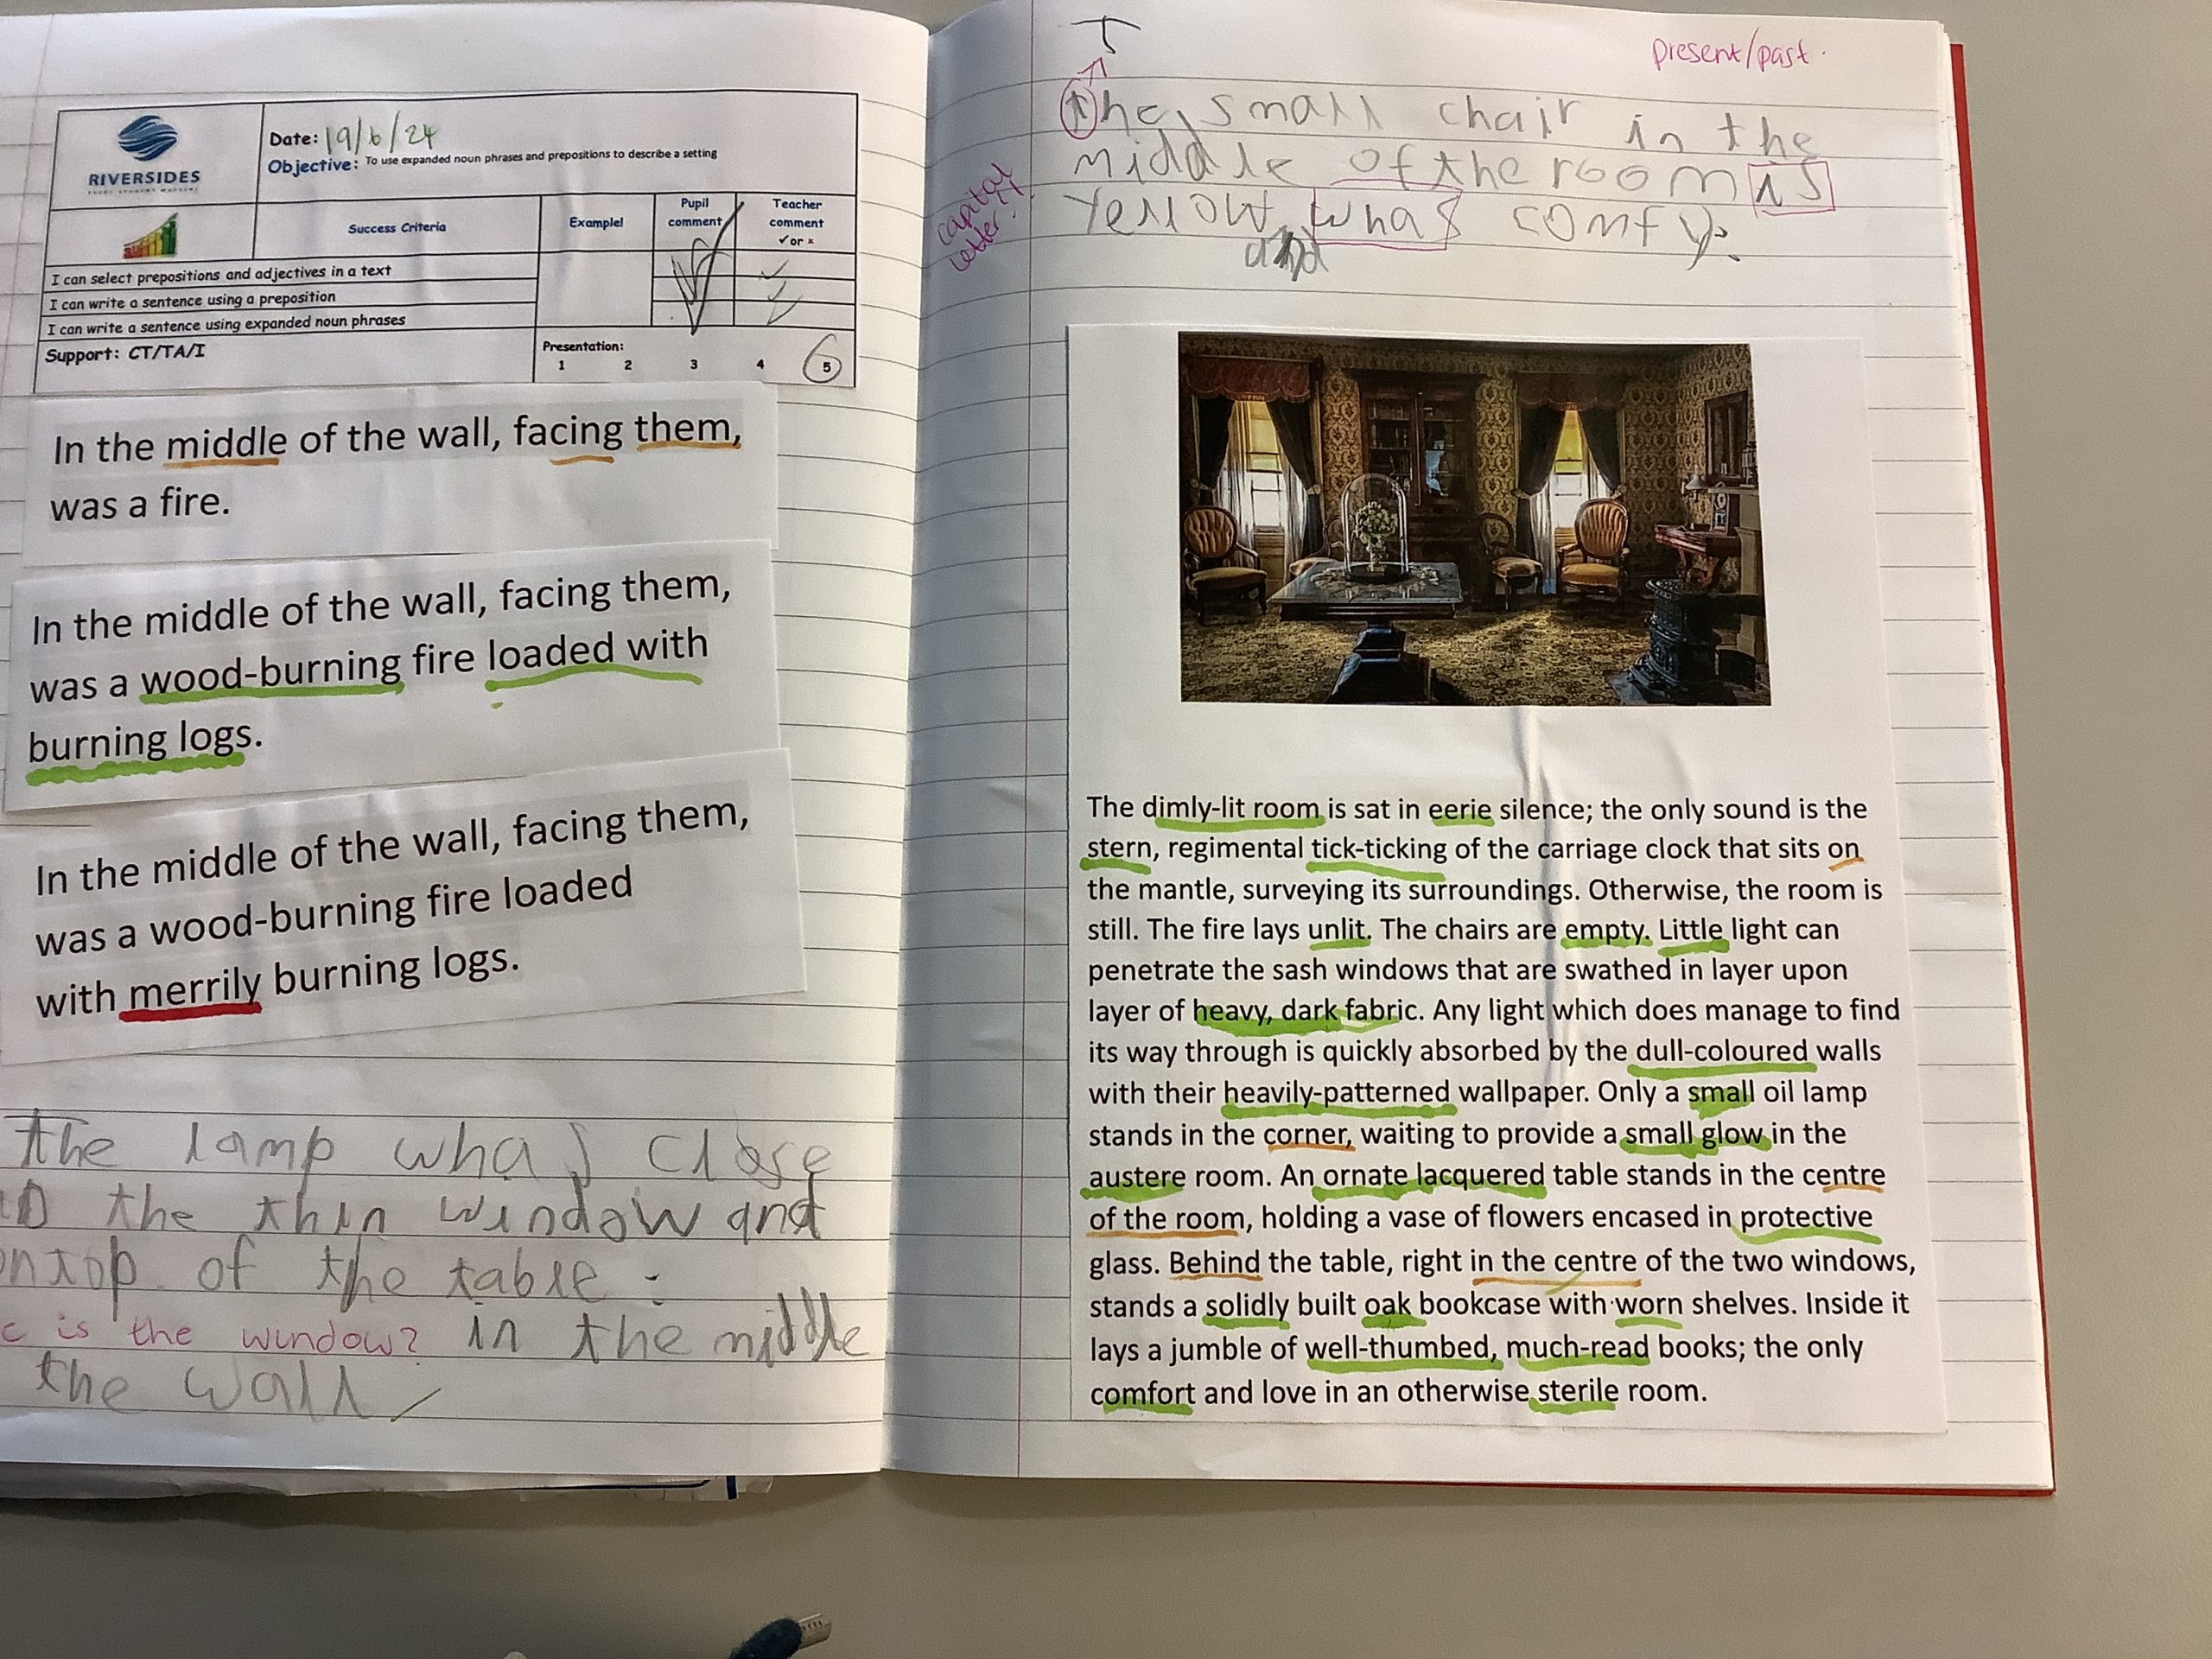 RIVERSIDES
Date: 19/6/24
Objective: To use expanded noun phrases and prepositions to describe a setting
Success Criteria
Example!
Pupil comment
Teacher comment
✓ or ×
I can select prepositions and adjectives in a text
I can write a sentence using a preposition
I can write a sentence using expanded noun phrases
Support: CT/TA/I
Presentation:
1 2 3 4 5
In the middle of the wall, facing them,
was a fire.
In the middle of the wall, facing them,
was a wood-burning fire loaded with
burning logs.
In the middle of the wall, facing them,
was a wood-burning fire loaded
with merrily burning logs.
The lamp whas close
the thin window and
ontop of the table.
is the window? in the middle
the wall
T
present/past.
the small chair in the
middle of the room is
Yellow whas comfy.
and
capital
letter!
The dimly-lit room is sat in eerie silence; the only sound is the
stern, regimental tick-ticking of the carriage clock that sits on
the mantle, surveying its surroundings. Otherwise, the room is
still. The fire lays unlit. The chairs are empty. Little light can
penetrate the sash windows that are swathed in layer upon
layer of heavy, dark fabric. Any light which does manage to find
its way through is quickly absorbed by the dull-coloured walls
with their heavily-patterned wallpaper. Only a small oil lamp
stands in the corner, waiting to provide a small glow in the
austere room. An ornate lacquered table stands in the centre
of the room, holding a vase of flowers encased in protective
glass. Behind the table, right in the centre of the two windows,
stands a solidly built oak bookcase with worn shelves. Inside it
lays a jumble of well-thumbed, much-read books; the only
comfort and love in an otherwise sterile room.